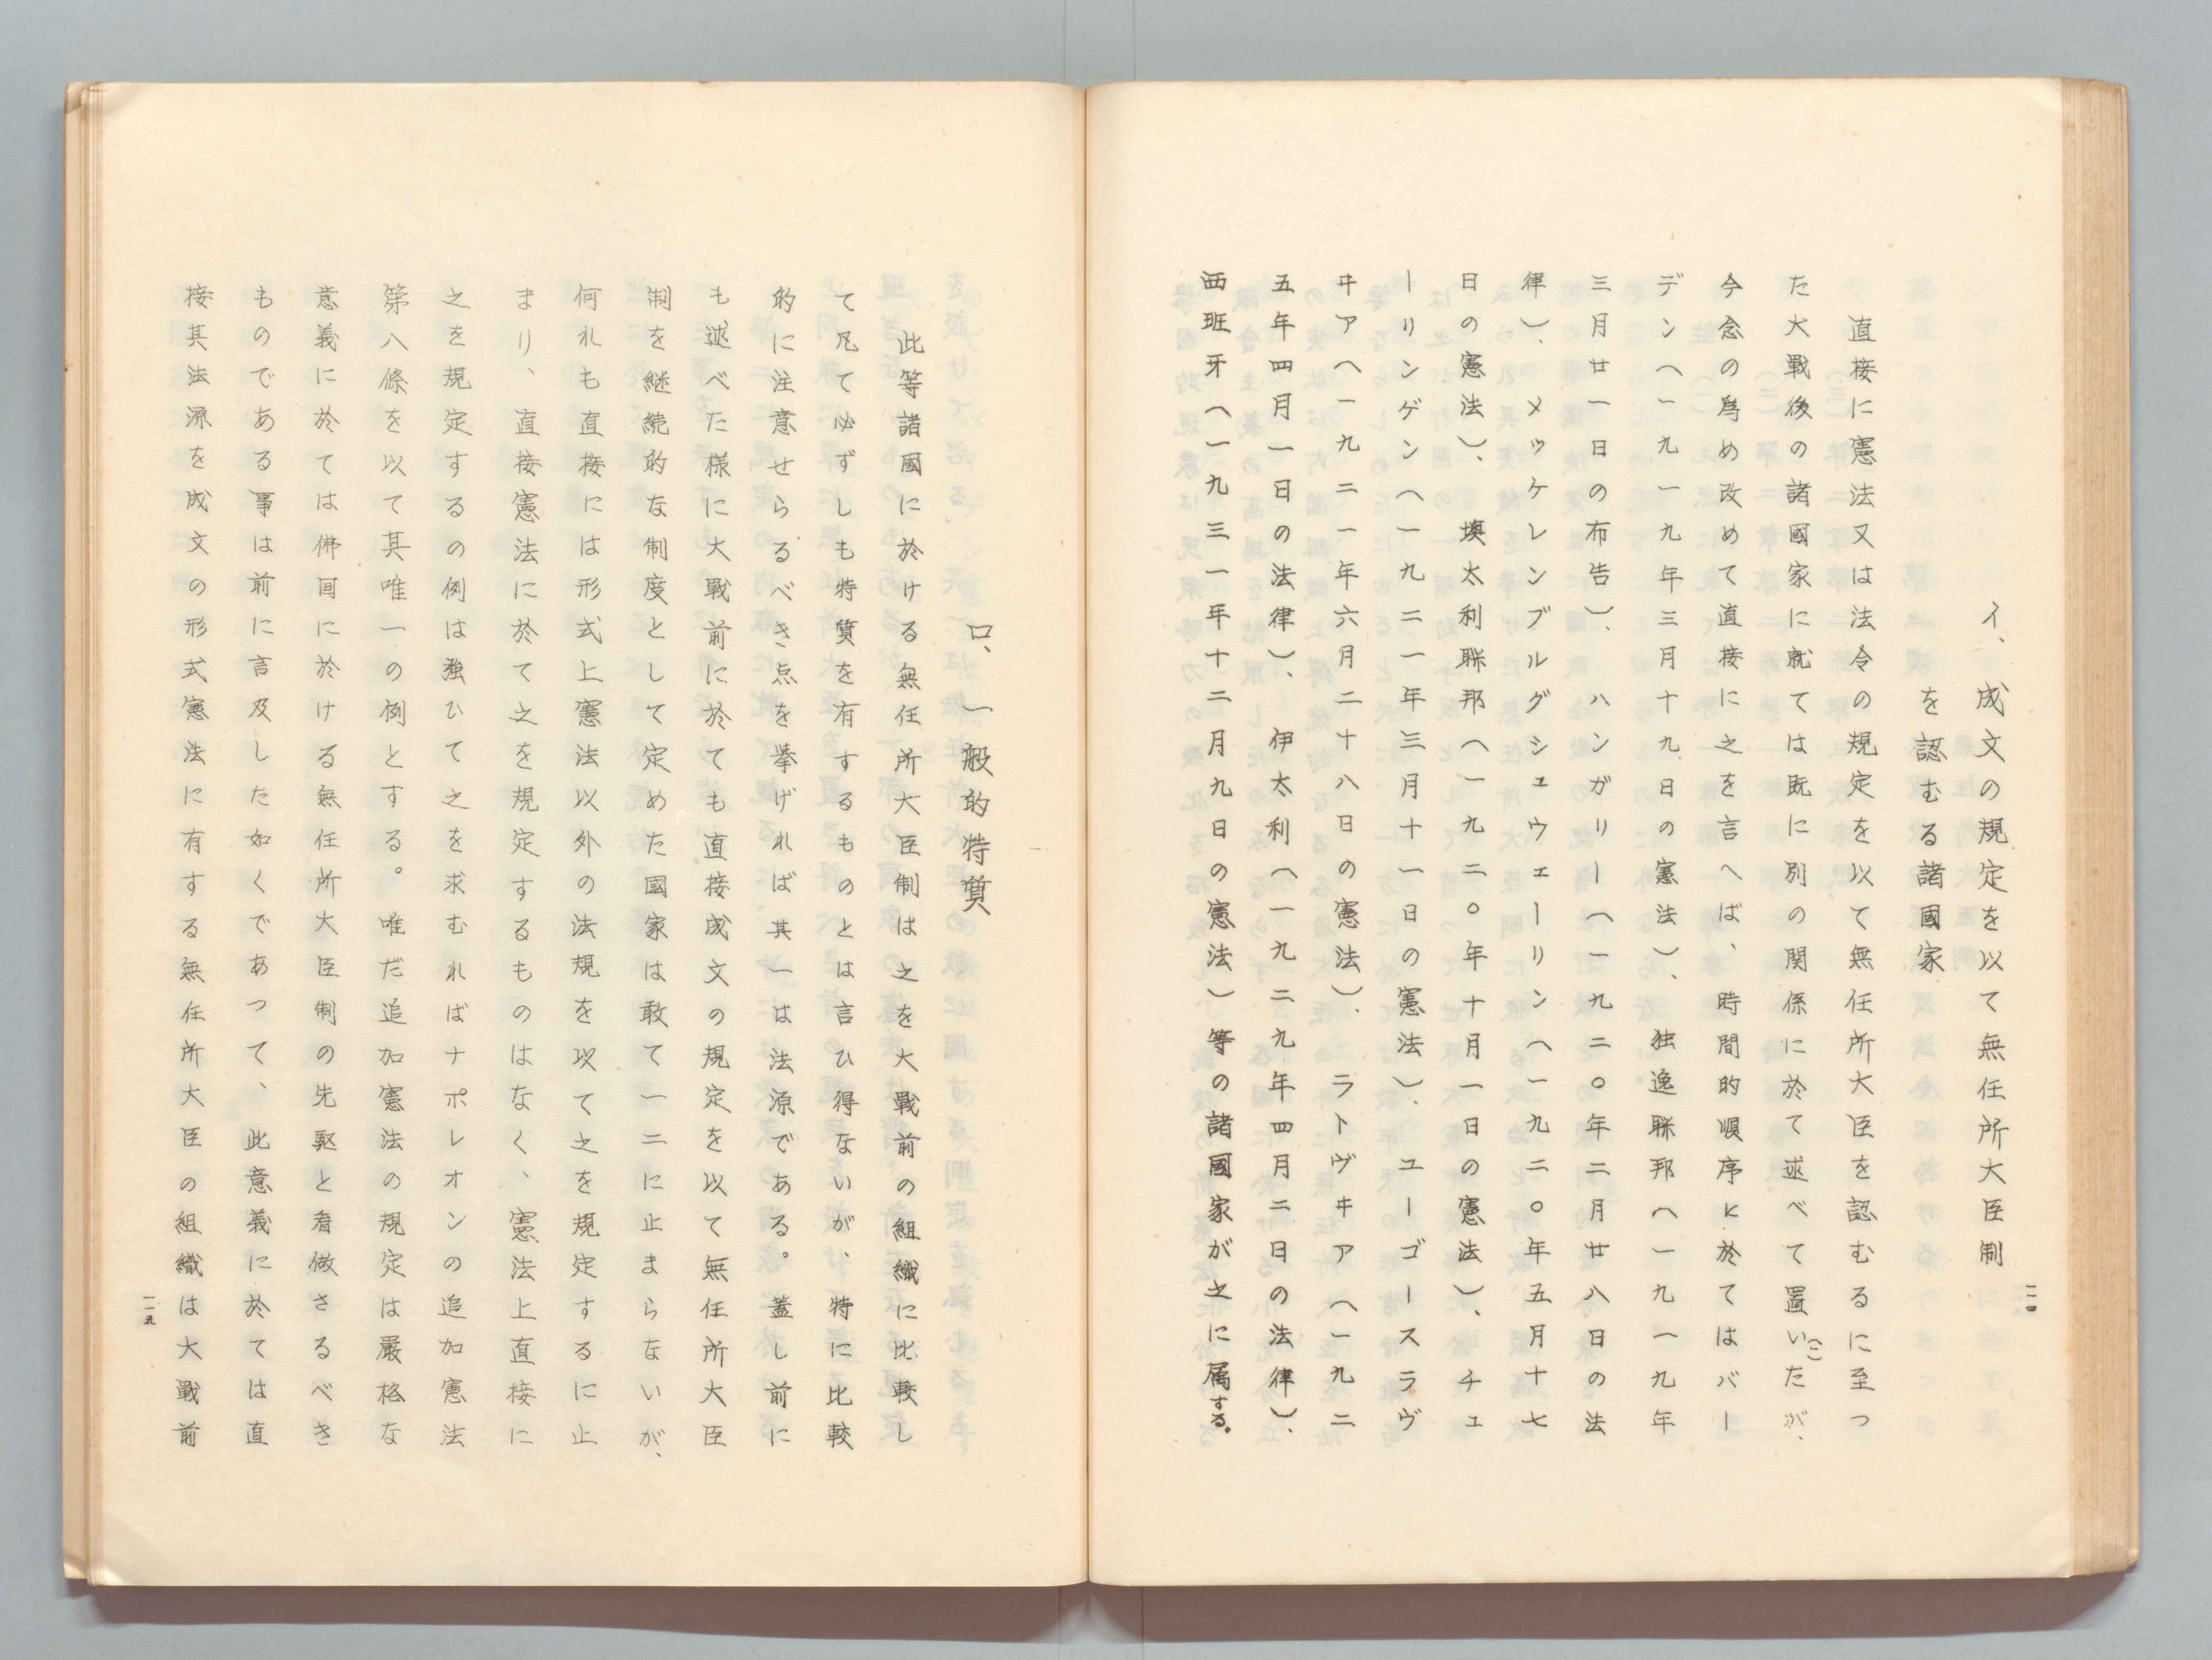 イ、成文の規定を以て無任所大臣制
を認むる諸國家
直接に憲法又は法令の規定を以て無任所大臣を認むるに至つ
た大戰後の諸國家に就ては既に別の関係に於て述べて置いた(二)が、
今念の爲め改めて直接に之を言へば、時間的順序に於てはバー
デン(一九一九年三月十九日の憲法)、独逸聯邦(一九一九年
三月廿一日の布告)、ハンガリー(一九二〇年二月廿八日の法
律)、メッケレンブルグシュウェーリン(一九二〇年五月十七
日の憲法)、墺太利聯邦(一九二〇年十月一日の憲法)、チュ
ーリンゲン(一九二一年三月十一日の憲法)、ユーゴースラヴ
ヰア(一九二一年六月二十八日の憲法)、ラトヴヰア(一九二
五年四月一日の法律)、伊太利(一九二九年四月二日の法律)、
西班牙(一九三一年十二月九日の憲法)等の諸國家が之に属する。
一一四
ロ、一般的特質
此等諸國に於ける無任所大臣制は之を大戰前の組織に比較し
て凡て必ずしも特質を有するものとは言ひ得ないが、特に比較
的に注意せらるべき点を挙げれば其一は法源である。蓋し前に
も述べた様に大戰前に於ても直接成文の規定を以て無任所大臣
制を継続的な制度として定めた國家は敢て一二に止まらないが、
何れも直接には形式上憲法以外の法規を以て之を規定するに止
まり、直接憲法に於て之を規定するものはなく、憲法上直接に
之を規定するの例は強ひて之を求むればナポレオンの追加憲法
第八條を以て其唯一の例とする。唯だ追加憲法の規定は嚴格な
意義に於ては佛国に於ける無任所大臣制の先駆と看做さるべき
ものである事は前に言及した如くであつて、此意義に於ては直
接其法源を成文の形式憲法に有する無任所大臣の組織は大戰前
一一五